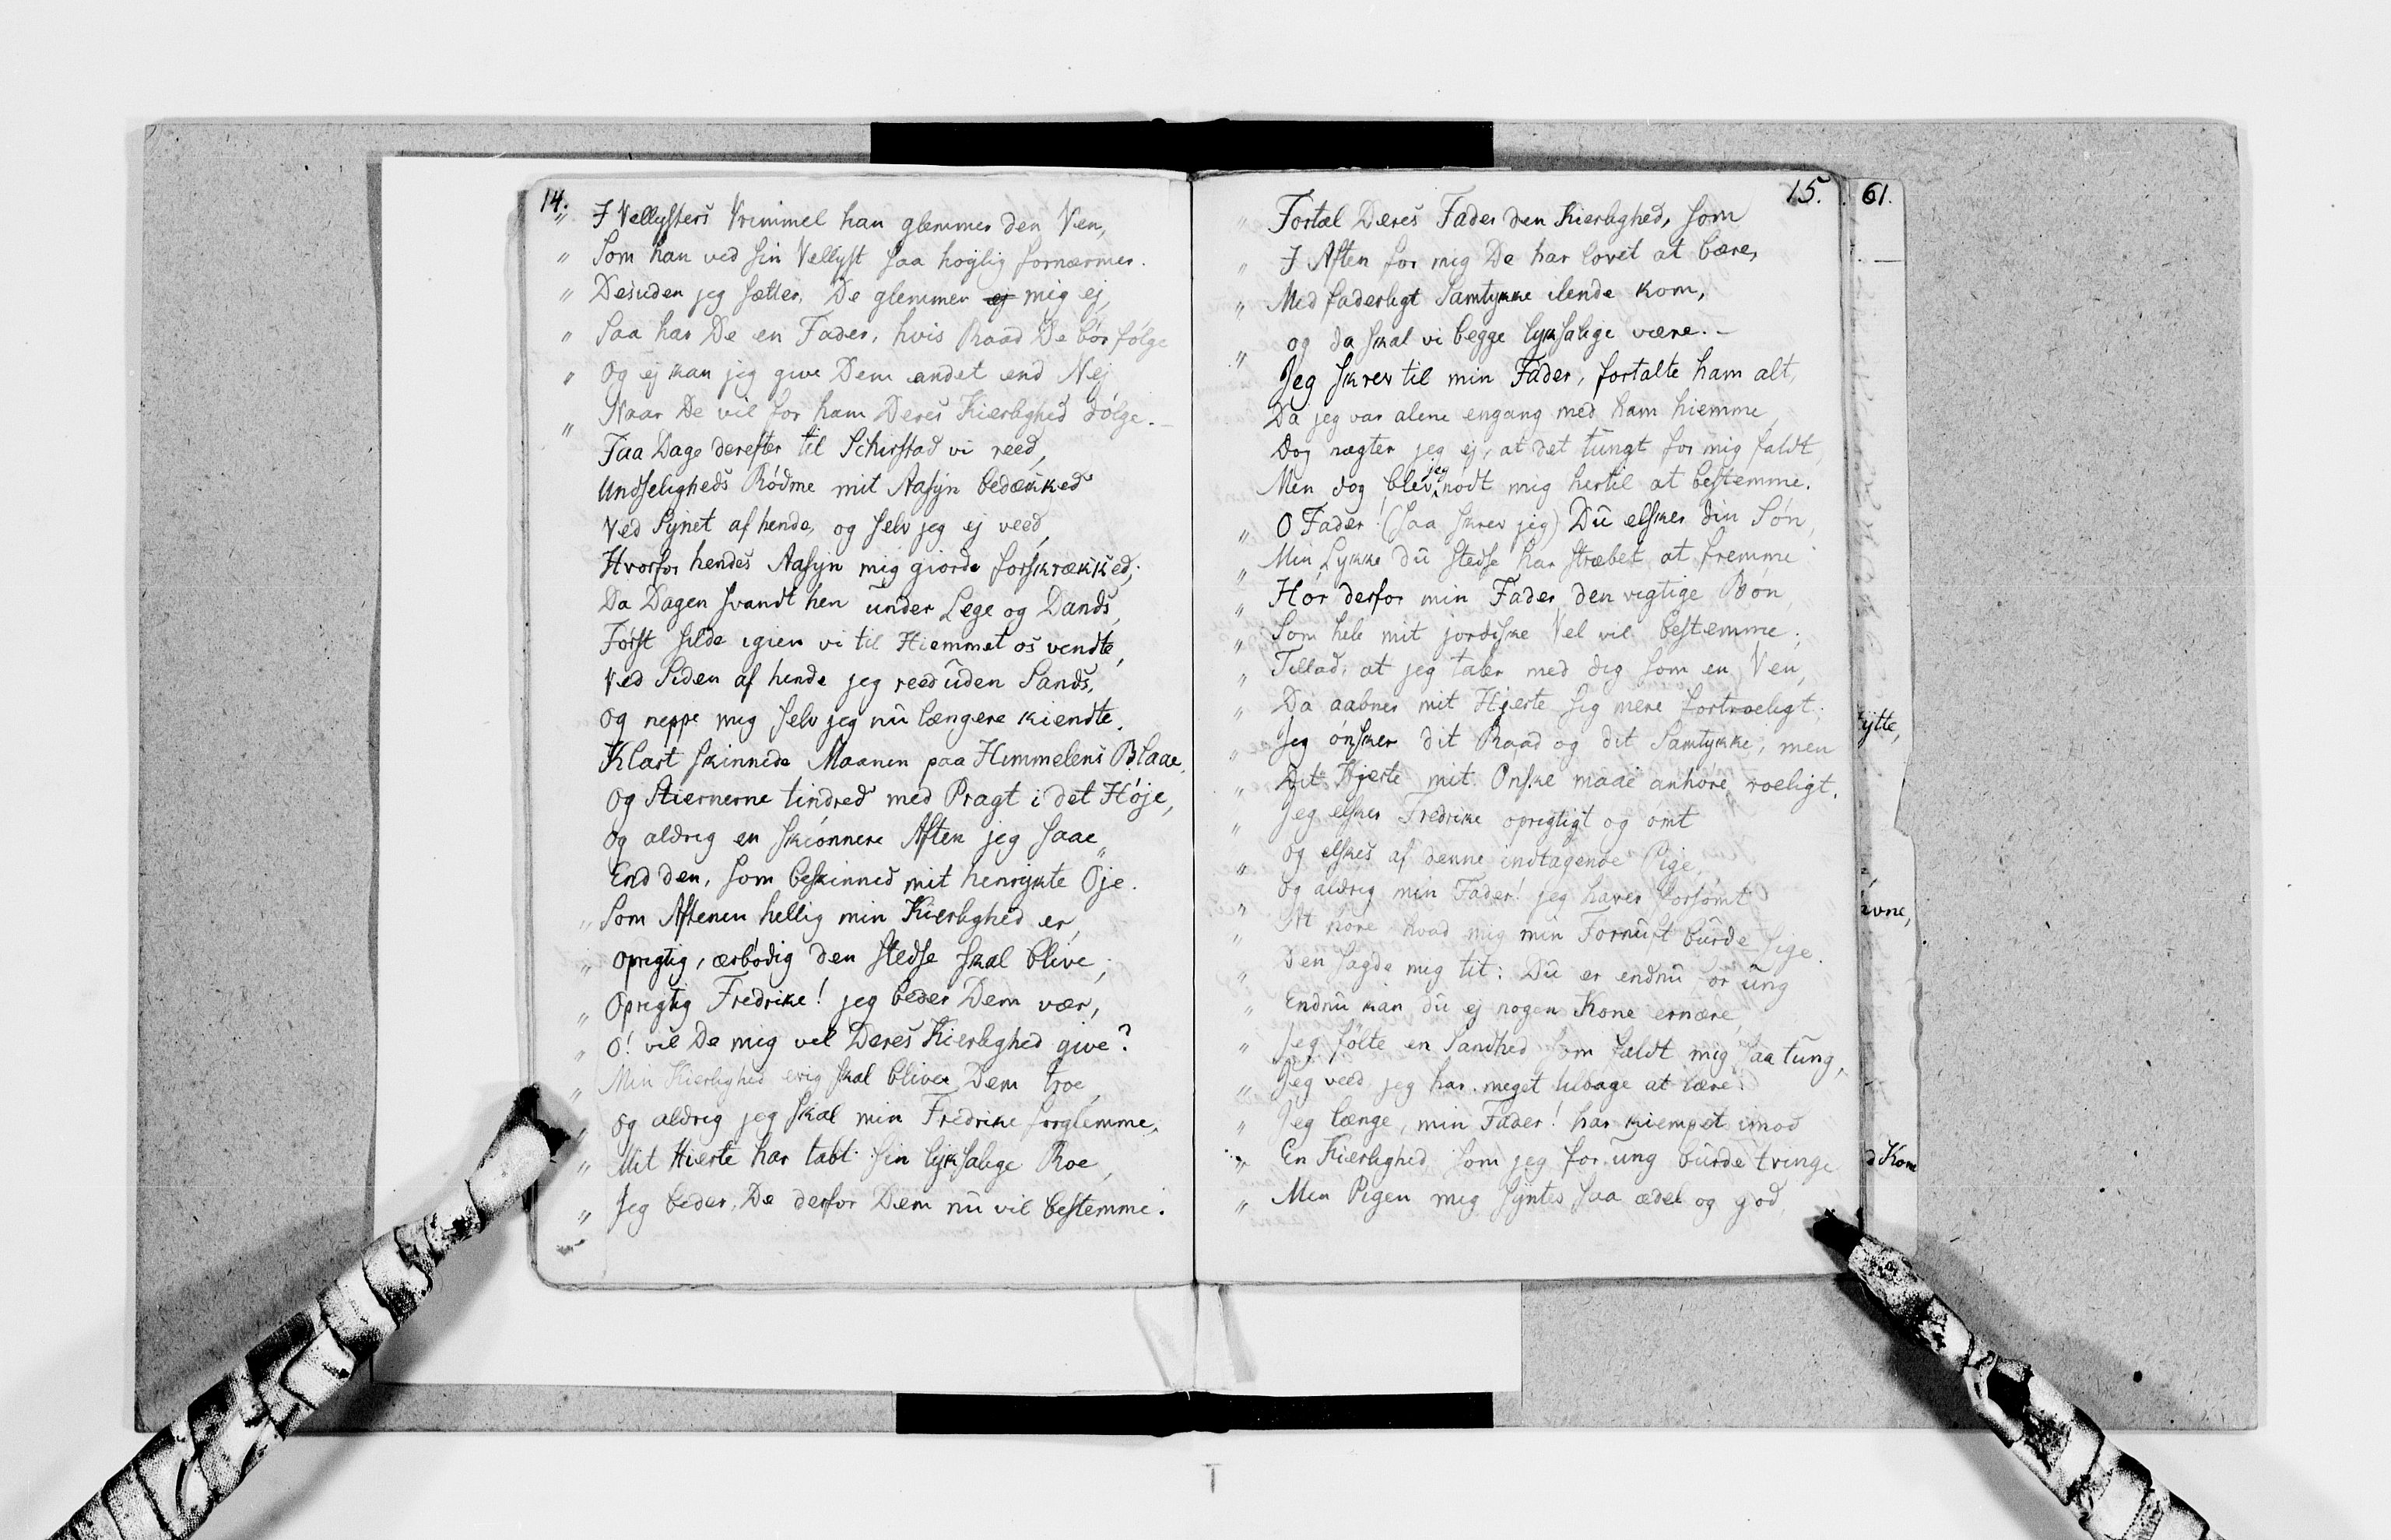 14.
„ I Vellysters Vrimmel han glemmer den Ven,
„ Som han ved sin Vellyst saa høylig fornærmer.
„ Desuden jeg sætter, De glemmer ej mig ej,
„ Saa har De en Fader, hvis Raad De bør følge
„ Og ej kan jeg give Dem andet end Nej
„ Naar De vil for ham Deres Kierlighed dølge. –
Faa Dage derefter til Schirstad vi reed,
Undseligheds Rødme mit Aasyn bedækked
Ved Synet af hende, og selv jeg ej veed,
Hvorfor hendes Aasyn mig giorde forskrækked;
Da Dagen svandt hen under Lege og Dands,
Først silde igien vi til Hiemmet os vendte,
Ved Siden af hende jeg reed uden Sands,
Og neppe mig selv jeg nu længere kiendte.
Klart skinnede Maanen paa Himmelens Blaae,
Og Stiernerne tindred med Pragt i det Høje,
Og aldrig en skiønnere Aften jeg saae
End den, som beskinned mit henrykte Øje.
„ Som Aftenen hellig min Kierlighed er,
„ Oprigtig, ærbødig den stedse skal blive;
„ Oprigtig Fredrike! jeg beder Dem vær,
„ O! vil De mig vel Deres Kierlighed give?
„ Min Kierlighed evig skal bliver Dem troe,
„ Og aldrig jeg skal min Fredrike forglemme,
„ Mit Hierte har tabt sin lyksalige Roe,
„ Jeg beder, De derfor Dem nu vil bestemme.
15.
„ Fortæl Deres Fader den Kierlighed, som
„ I Aften for mig De har lovet at bære,
„ Med faderligt Samtykke ilende kom,
„ Og da skal vi begge lyksalige være. –
Jeg skrev til min Fader, fortalte ham alt,
Da jeg var alene engang med ham hiemme,
Dog nægter jeg ej, at det tungt for mig faldt,
Men dog blev jeg nødt mig hertil at bestemme.
„ O Fader! (saa skrev jeg) Du elsker din Søn,
„ Min Lykke du stedse har stræbet at fremme
„ Hør derfor min Fader den vigtige Bøn,
„ Som hele mit jordiske Vel vil bestemme;
„ Tillad, at jeg taler med dig som en Ven,
„ Da aabner mit Hjerte sig mere fortroeligt;
„ Jeg ønsker dit Raad og dit Samtykke, men
„ Dit Hjerte mit Ønske maae anhøre roeligt.
„ Jeg elsker Fredrike oprigtigt og ømt
„ Og elskes af denne indtagende Pige,
„ Og aldrig min Fader! jeg haver forsømt
„ At høre hvad mig min Fornuft burde sige.
„ Den sagde mig tit: Du er endnu for ung
„ Endnu kan du ej nogen Kone ernære,
„ Jeg følte en Sandhed som faldt mig saa tung,
„ Jeg veed jeg har meget tilbage at lære.
„ Jeg længe, min Fader! har kiempet imod
„ En Kierlighed som jeg for ung burde tvinge
„ Men Pigen mig syntes saa ædel og god,
61.
ytte,
ævne,
d Kone